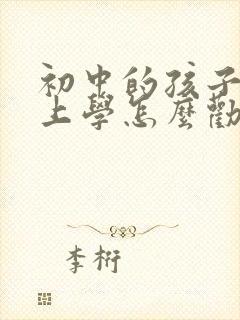 初中的孩子
上學怎麼勸
李桁